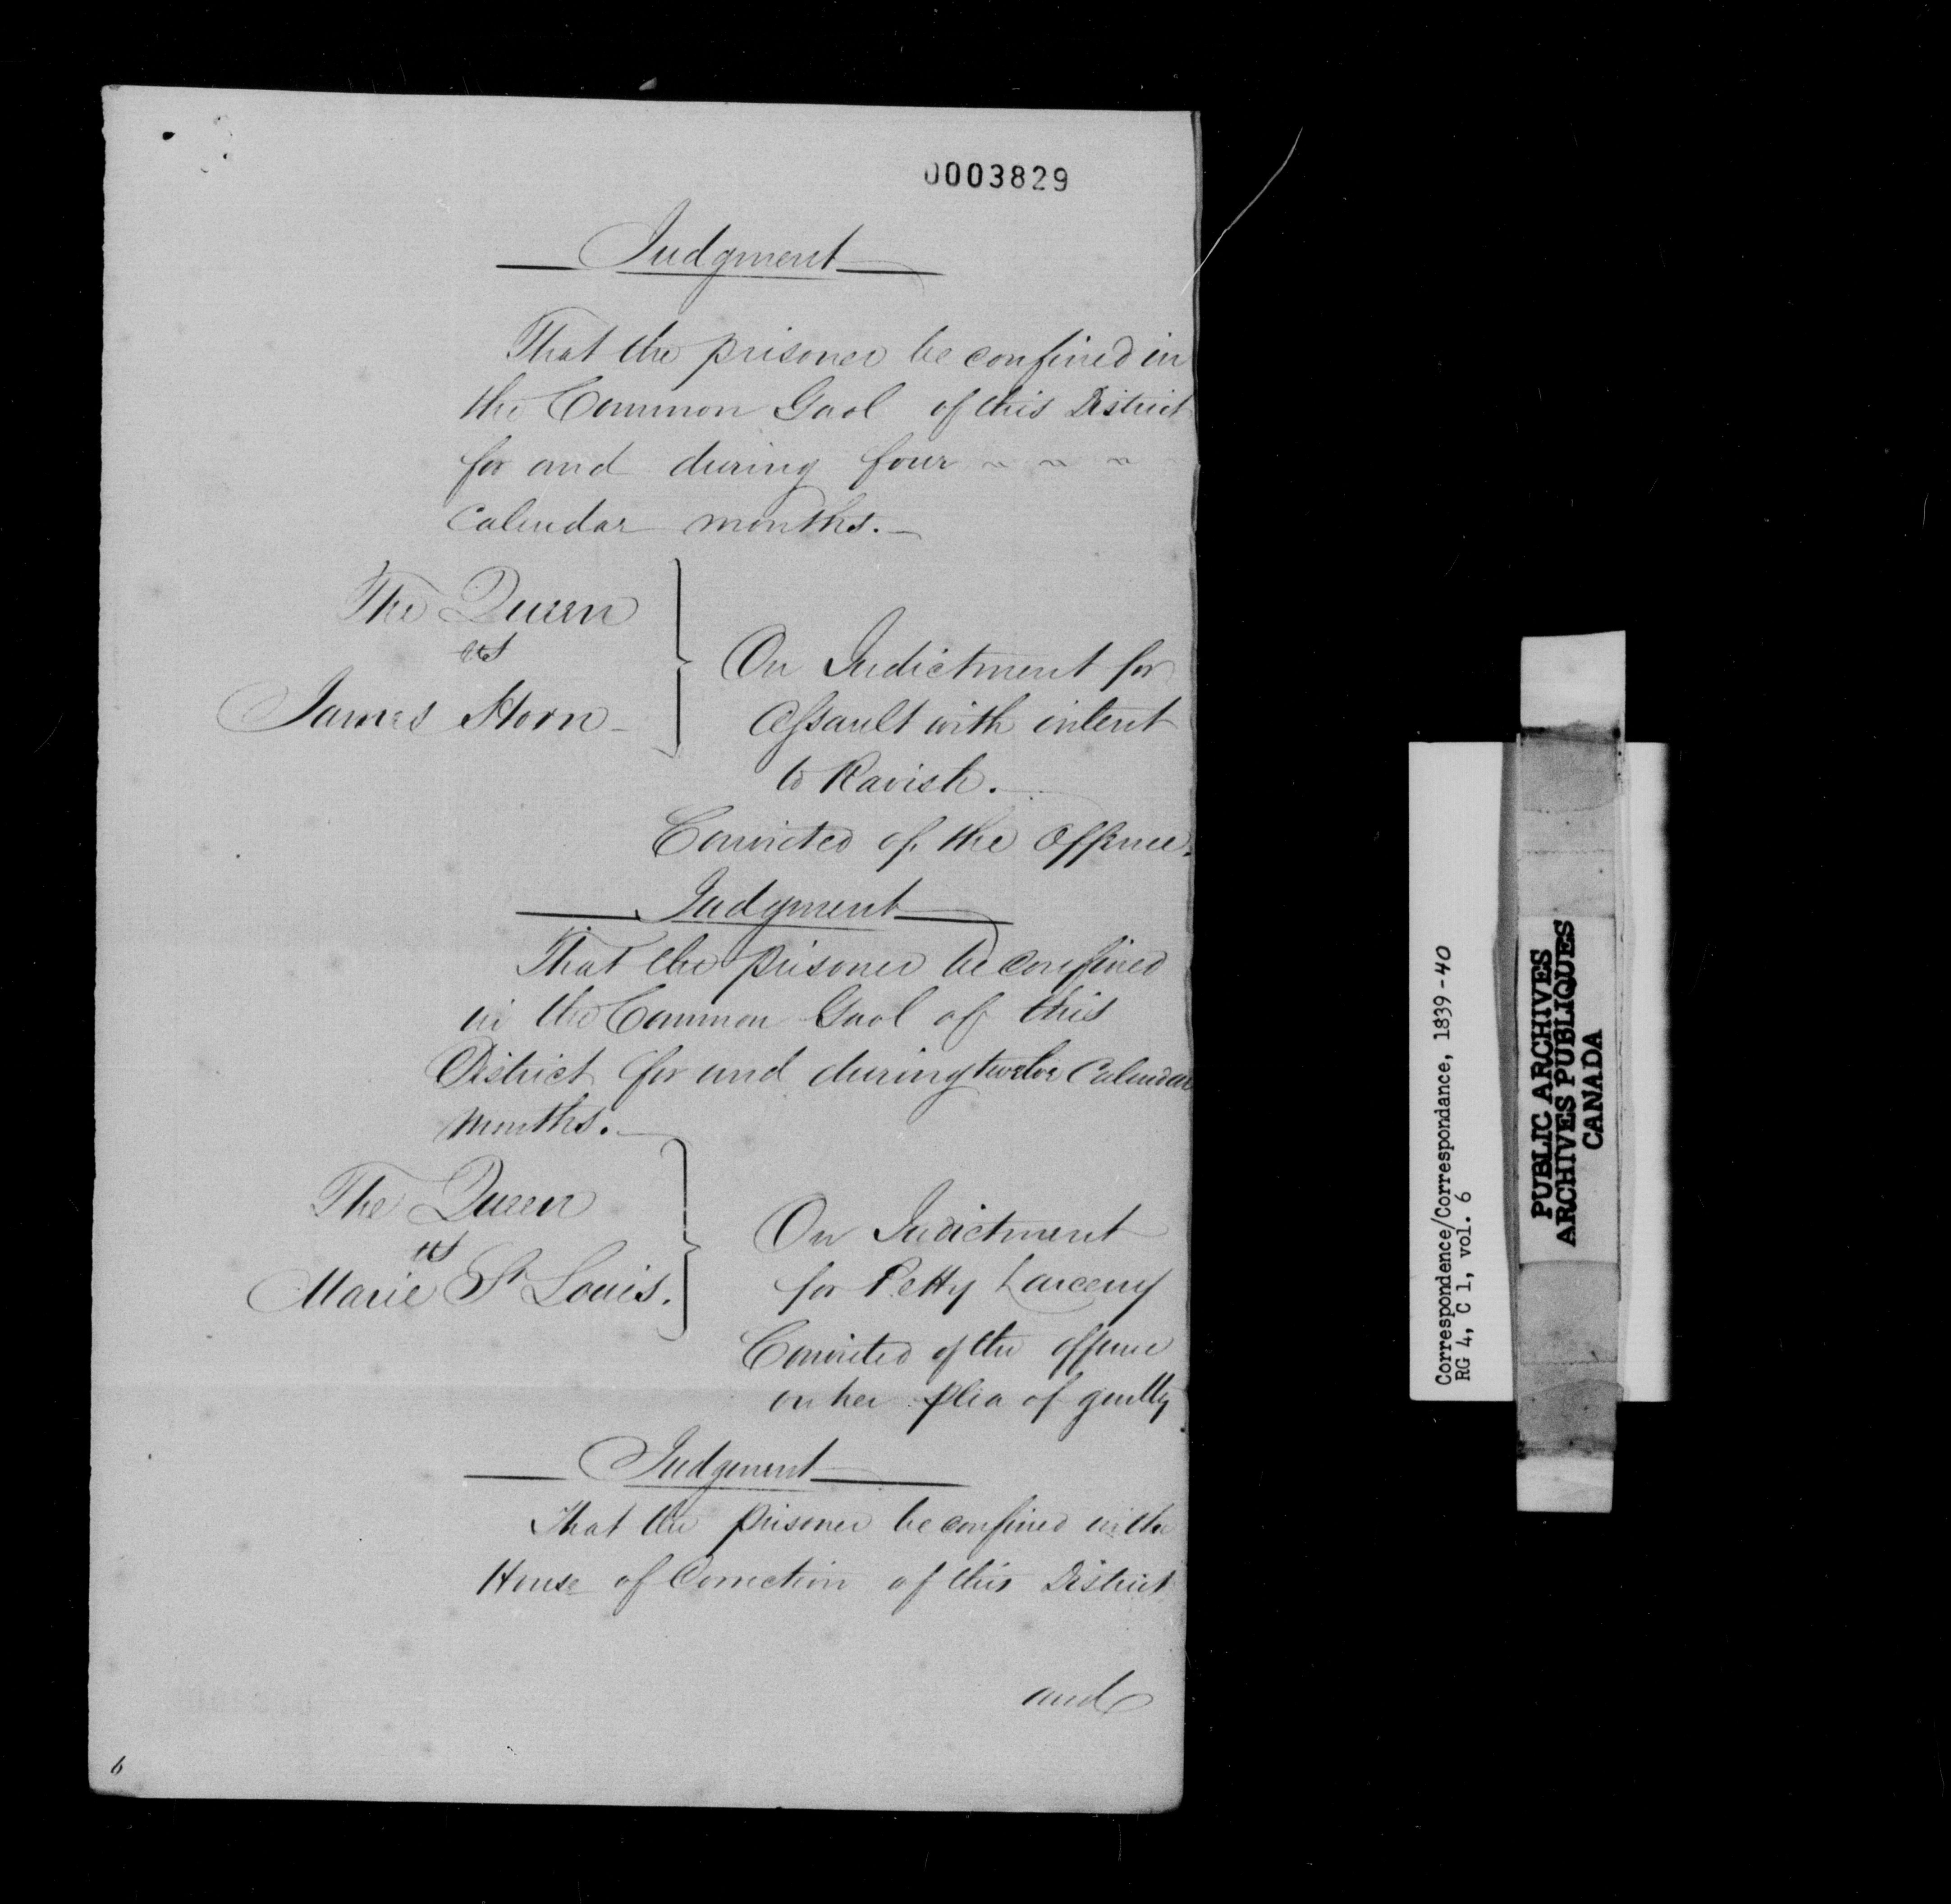 0003829
Judgment
That the prisoner be confined in
the Common Gaol of this District
for and during four ~ ~ ~
Calendar months. —
The Queen
vs
James Horn —
On Indictment for
Assault with intent
to Ravish. —
Convicted of the Offence.
Judgment
That the prisoner be confined
in the Common Gaol of this
District for and during twelve Calendar
months. —
The Queen
vs
Marie St Louis.
On Indictment
for Petty Larceny
Convicted of the offence
on her plea of guilty
Judgment
That the prisoner be confined in the
House of Correction of this District
and
6
Correspondence/Correspondance, 1839-40
RG 4, C 1, vol. 6
PUBLIC ARCHIVES
ARCHIVES PUBLIQUES
CANADA